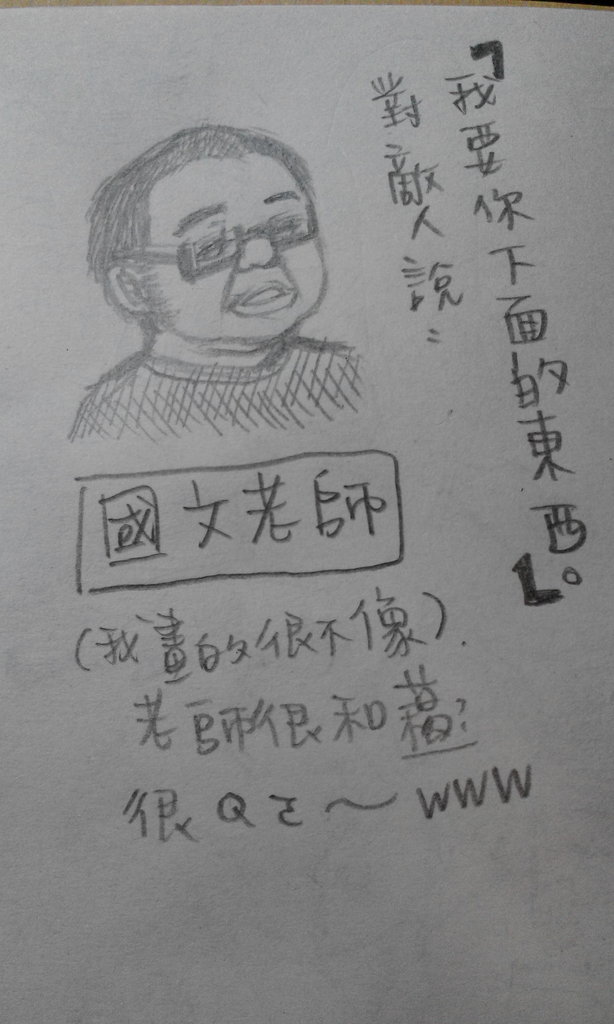 對敵人說：
「我要你下面的東西。」
國文老師
(我畫的很不像).
老師很和藹?
很Qさ～www